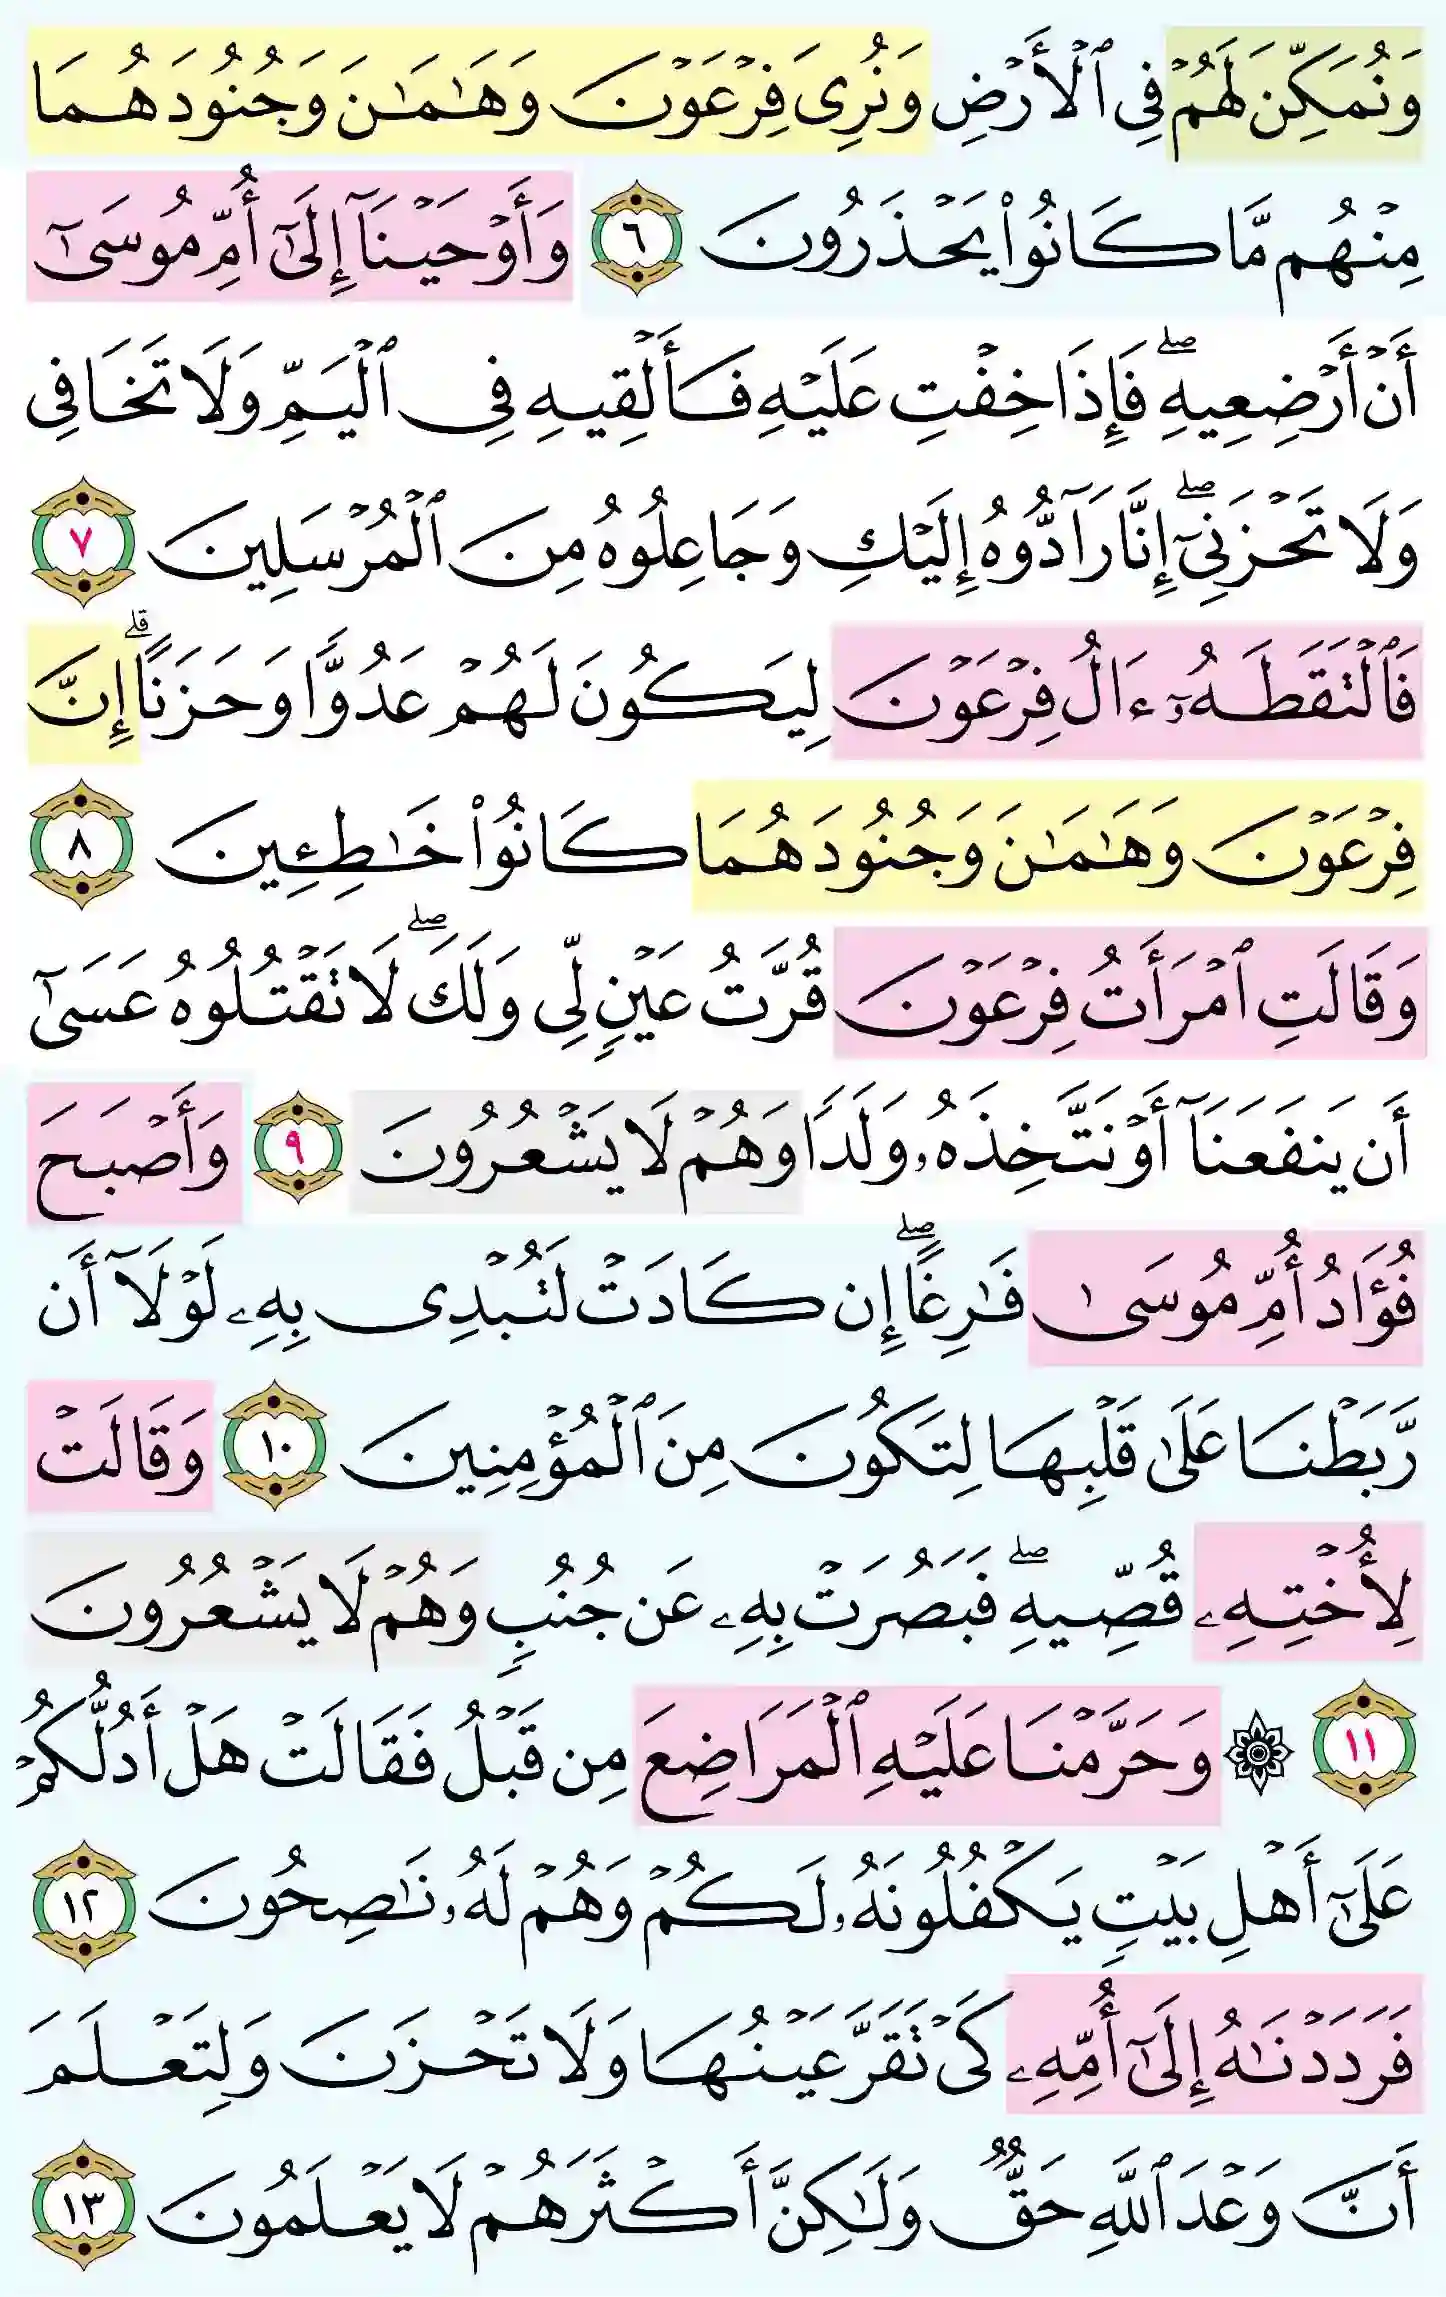 وَنُمَكِّنَ لَهُمۡ فِي ٱلۡأَرۡضِ وَنُرِيَ فِرۡعَوۡنَ وَهَٰمَٰنَ وَجُنُودَهُمَا
مِنۡهُم مَّا كَانُواْ يَحۡذَرُونَ ٦ وَأَوۡحَيۡنَآ إِلَىٰٓ أُمِّ مُوسَىٰٓ
أَنۡ أَرۡضِعِيهِۖ فَإِذَا خِفۡتِ عَلَيۡهِ فَأَلۡقِيهِ فِي ٱلۡيَمِّ وَلَا تَخَافِي
وَلَا تَحۡزَنِيٓۖ إِنَّا رَآدُّوهُ إِلَيۡكِ وَجَاعِلُوهُ مِنَ ٱلۡمُرۡسَلِينَ ٧
فَٱلۡتَقَطَهُۥٓ ءَالُ فِرۡعَوۡنَ لِيَكُونَ لَهُمۡ عَدُوّٗا وَحَزَنًاۗ إِنَّ
فِرۡعَوۡنَ وَهَٰمَٰنَ وَجُنُودَهُمَا كَانُواْ خَٰطِـِٔينَ ٨
وَقَالَتِ ٱمۡرَأَتُ فِرۡعَوۡنَ قُرَّتُ عَيۡنٖ لِّي وَلَكَۖ لَا تَقۡتُلُوهُ عَسَىٰٓ
أَن يَنفَعَنَآ أَوۡ نَتَّخِذَهُۥ وَلَدٗا وَهُمۡ لَا يَشۡعُرُونَ ٩ وَأَصۡبَحَ
فُؤَادُ أُمِّ مُوسَىٰ فَٰرِغًاۖ إِن كَادَتۡ لَتُبۡدِي بِهِۦ لَوۡلَآ أَن
رَّبَطۡنَا عَلَىٰ قَلۡبِهَا لِتَكُونَ مِنَ ٱلۡمُؤۡمِنِينَ ١٠ وَقَالَتۡ
لِأُخۡتِهِۦ قُصِّيهِۖ فَبَصُرَتۡ بِهِۦ عَن جُنُبٖ وَهُمۡ لَا يَشۡعُرُونَ
١١ ۞ وَحَرَّمۡنَا عَلَيۡهِ ٱلۡمَرَاضِعَ مِن قَبۡلُ فَقَالَتۡ هَلۡ أَدُلُّكُمۡ
عَلَىٰٓ أَهۡلِ بَيۡتٖ يَكۡفُلُونَهُۥ لَكُمۡ وَهُمۡ لَهُۥ نَٰصِحُونَ ١٢
فَرَدَدۡنَٰهُ إِلَىٰٓ أُمِّهِۦ كَيۡ تَقَرَّ عَيۡنُهَا وَلَا تَحۡزَنَ وَلِتَعۡلَمَ
أَنَّ وَعۡدَ ٱللَّهِ حَقّٞ وَلَٰكِنَّ أَكۡثَرَهُمۡ لَا يَعۡلَمُونَ ١٣